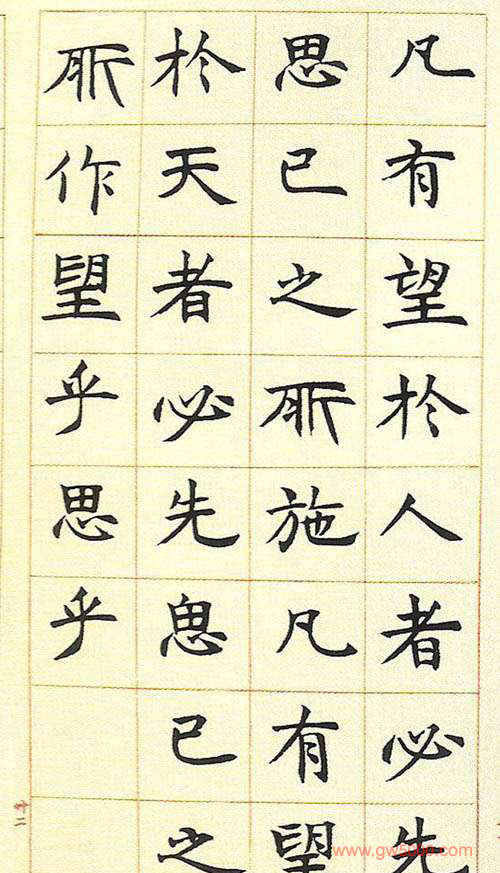 凡有望於人者必先
思已之所施凡有望
於天者必先思已之
所作望乎思乎
十二
www.gw5000.com